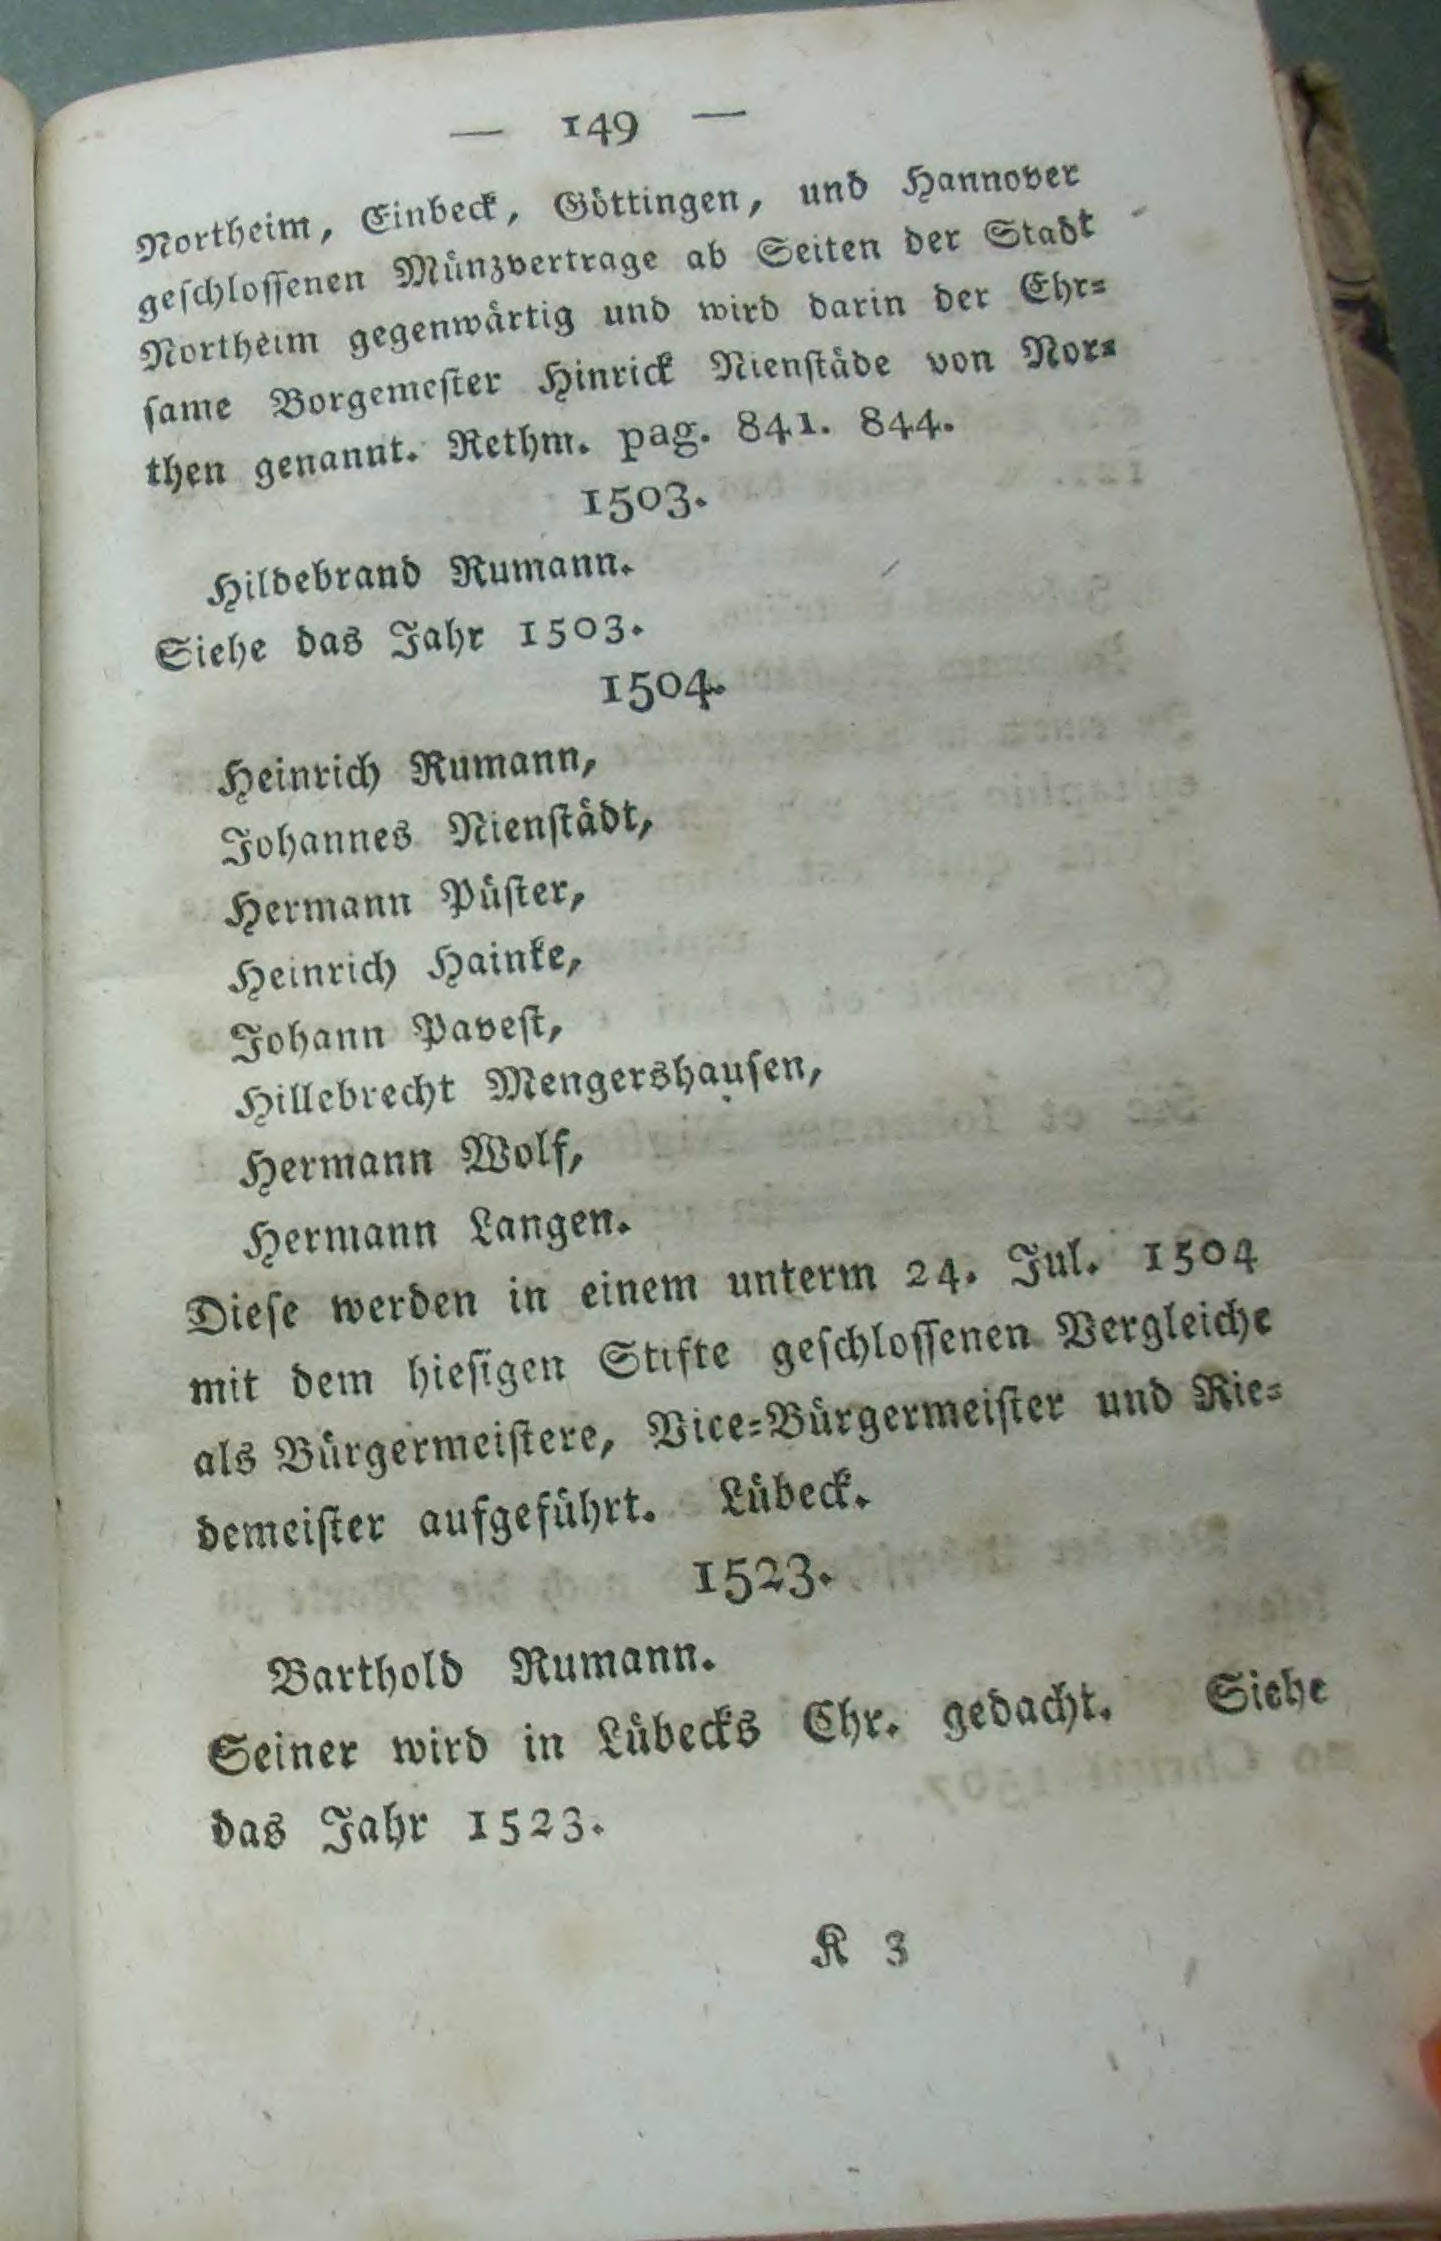 — 149 —
Northeim, Einbeck, Göttingen, und Hannover
geſchloſſenen Münzvertrage ab Seiten der Stadt
Northeim gegenwärtig und wird darin der Ehr-
ſame Borgemeſter Hinrick Nienſtäde von Nor-
then genannt. Rethm. pag. 841. 844.
1503.
Hildebrand Rumann.
Siehe das Jahr 1503.
1504.
Heinrich Rumann,
Johannes Nienſtädt,
Hermann Püſter,
Heinrich Hainke,
Johann Paveſt,
Hillebrecht Mengershauſen,
Hermann Wolf,
Hermann Langen.
Dieſe werden in einem unterm 24. Jul. 1504
mit dem hieſigen Stifte geſchloſſenen Vergleiche
als Bürgermeiſtere, Vice-Bürgermeiſter und Rie-
demeiſter aufgeführt. Lübeck.
1523.
Barthold Rumann.
Seiner wird in Lübecks Chr. gedacht. Siehe
das Jahr 1523.
K 3